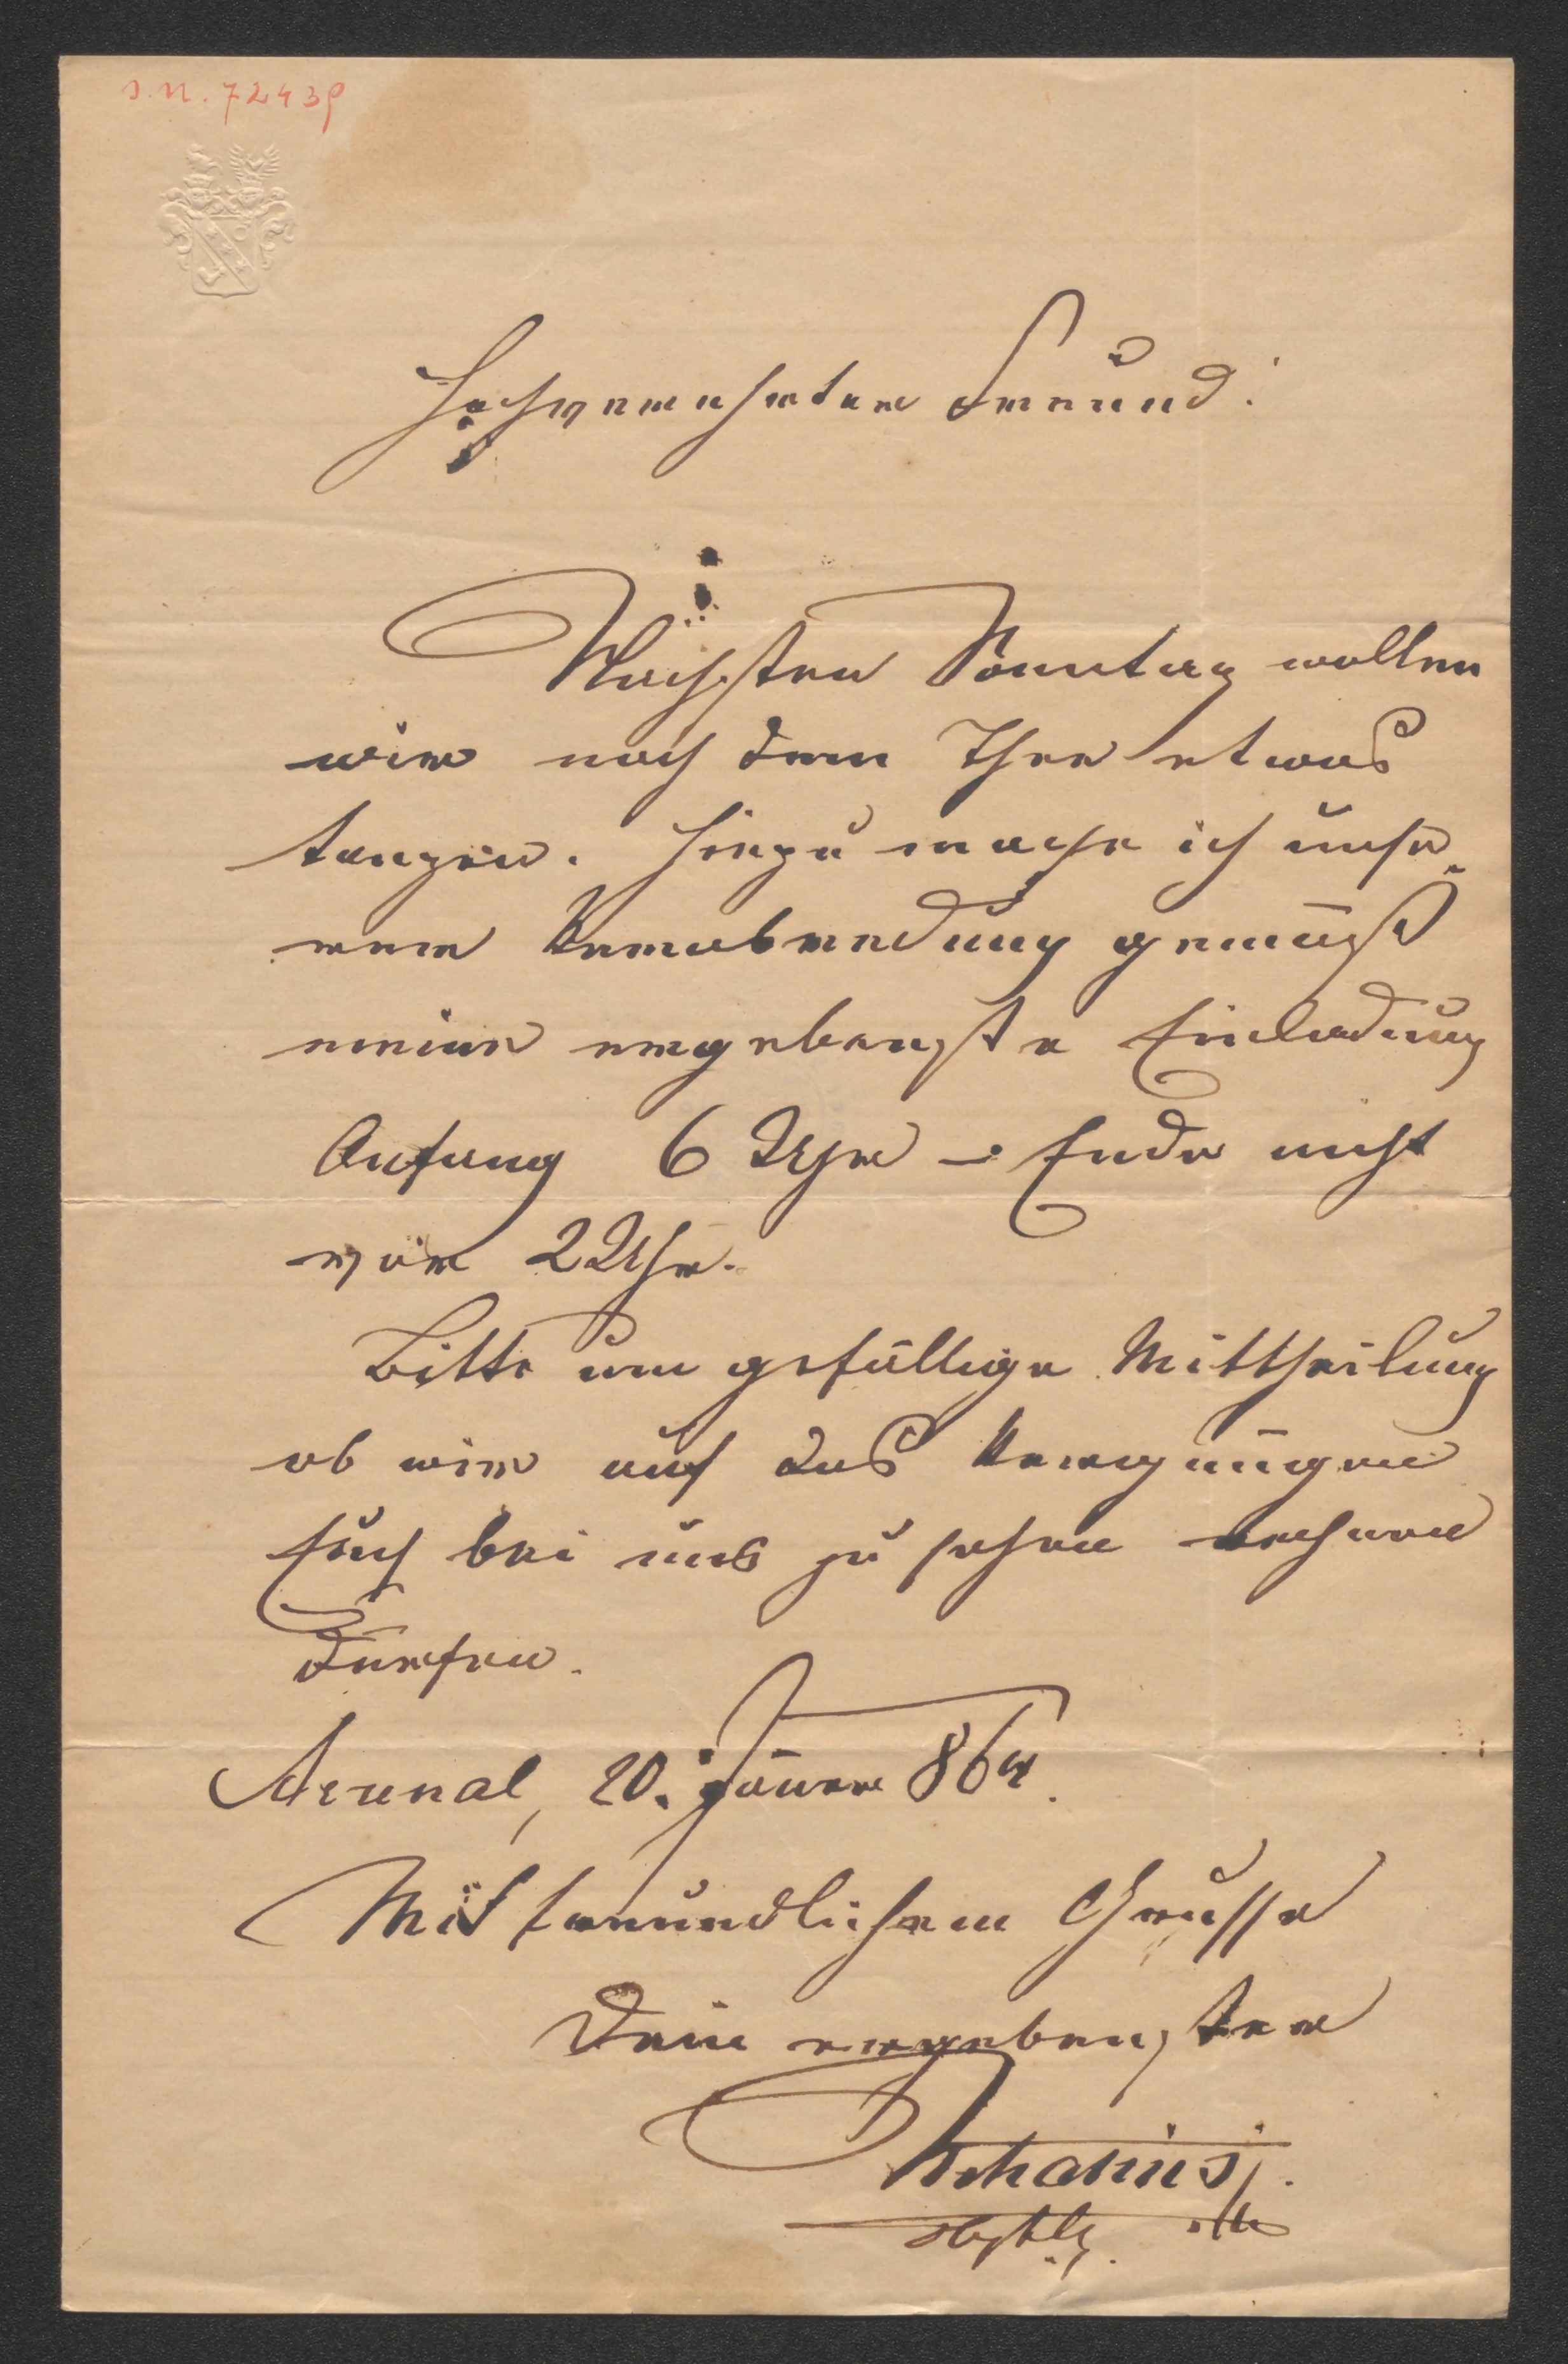 J.N. 72439
Hochverehrter Freund!
Nächsten Sonntag wollen
wir nach dem Thee etwas
tanzen. Hiezu mache ich unse„
rer Verabredung gemäß
meine ergebenste Einladung
Anfang 6 Uhr – Ende nicht
vor 2 Uhr.
Bitte um gefällige Mittheilung
ob wir auf das Vergnügen
Euch bei uns zu sehen rechnen
dürfen.
Arsenal, 20. Jäner 864.
Mit freundlichem Gruße
Dein ergebenster